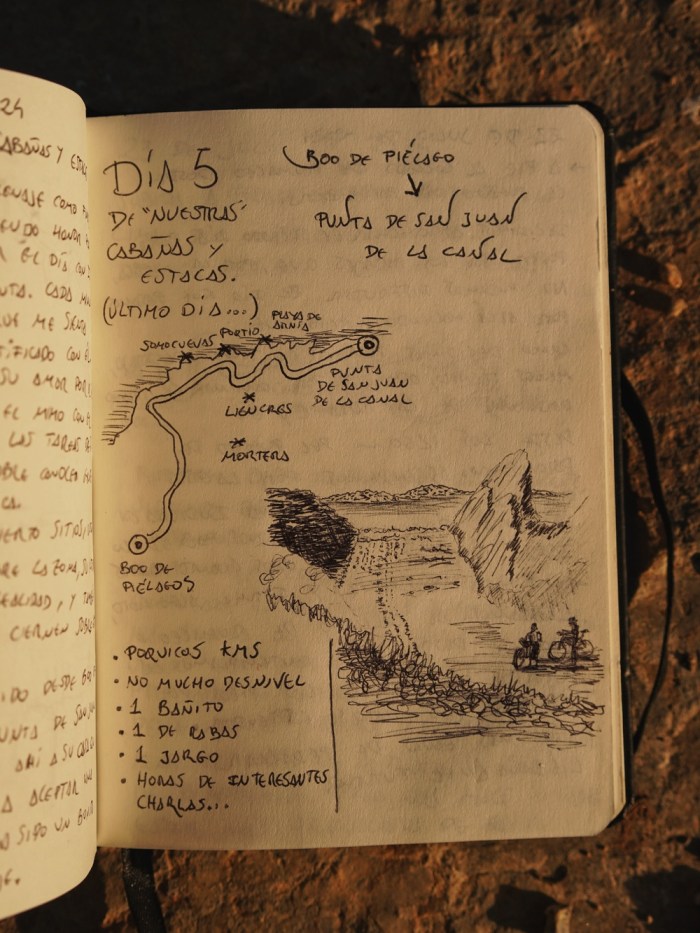 24
CABAÑAS Y
COMO
EL DÍA CON
CADA
QUE ME
CON
SU AMOR POR
EL MIMO CON
LAS TAREAS
LA ZONA,
REALIDAD, Y
CIERNEN
DESDE
PUNTA DE SAN
A SU
A ACEPTAR UN
SIDO UN
DÍA 5
DE "NUESTRAS"
CABAÑAS Y
ESTACAS.
(ÚLTIMO DÍA...)
BOO DE PIÉLAGO
↓
PUNTA DE SAN JUAN
DE LA CANAL
SOMOCUEVAS
PORTIO
PLAYA DE
ARNÍA
PUNTA
DE SAN JUAN
DE LA CANAL
LIENCRES
MORTERA
BOO DE
PIÉLAGOS
• POQUICOS KMS
• NO MUCHO DESNIVEL
• 1 BAÑITO
• 1 DE RABAS
• 1 JARGO
• HORAS DE INTERESANTES
CHARLAS...